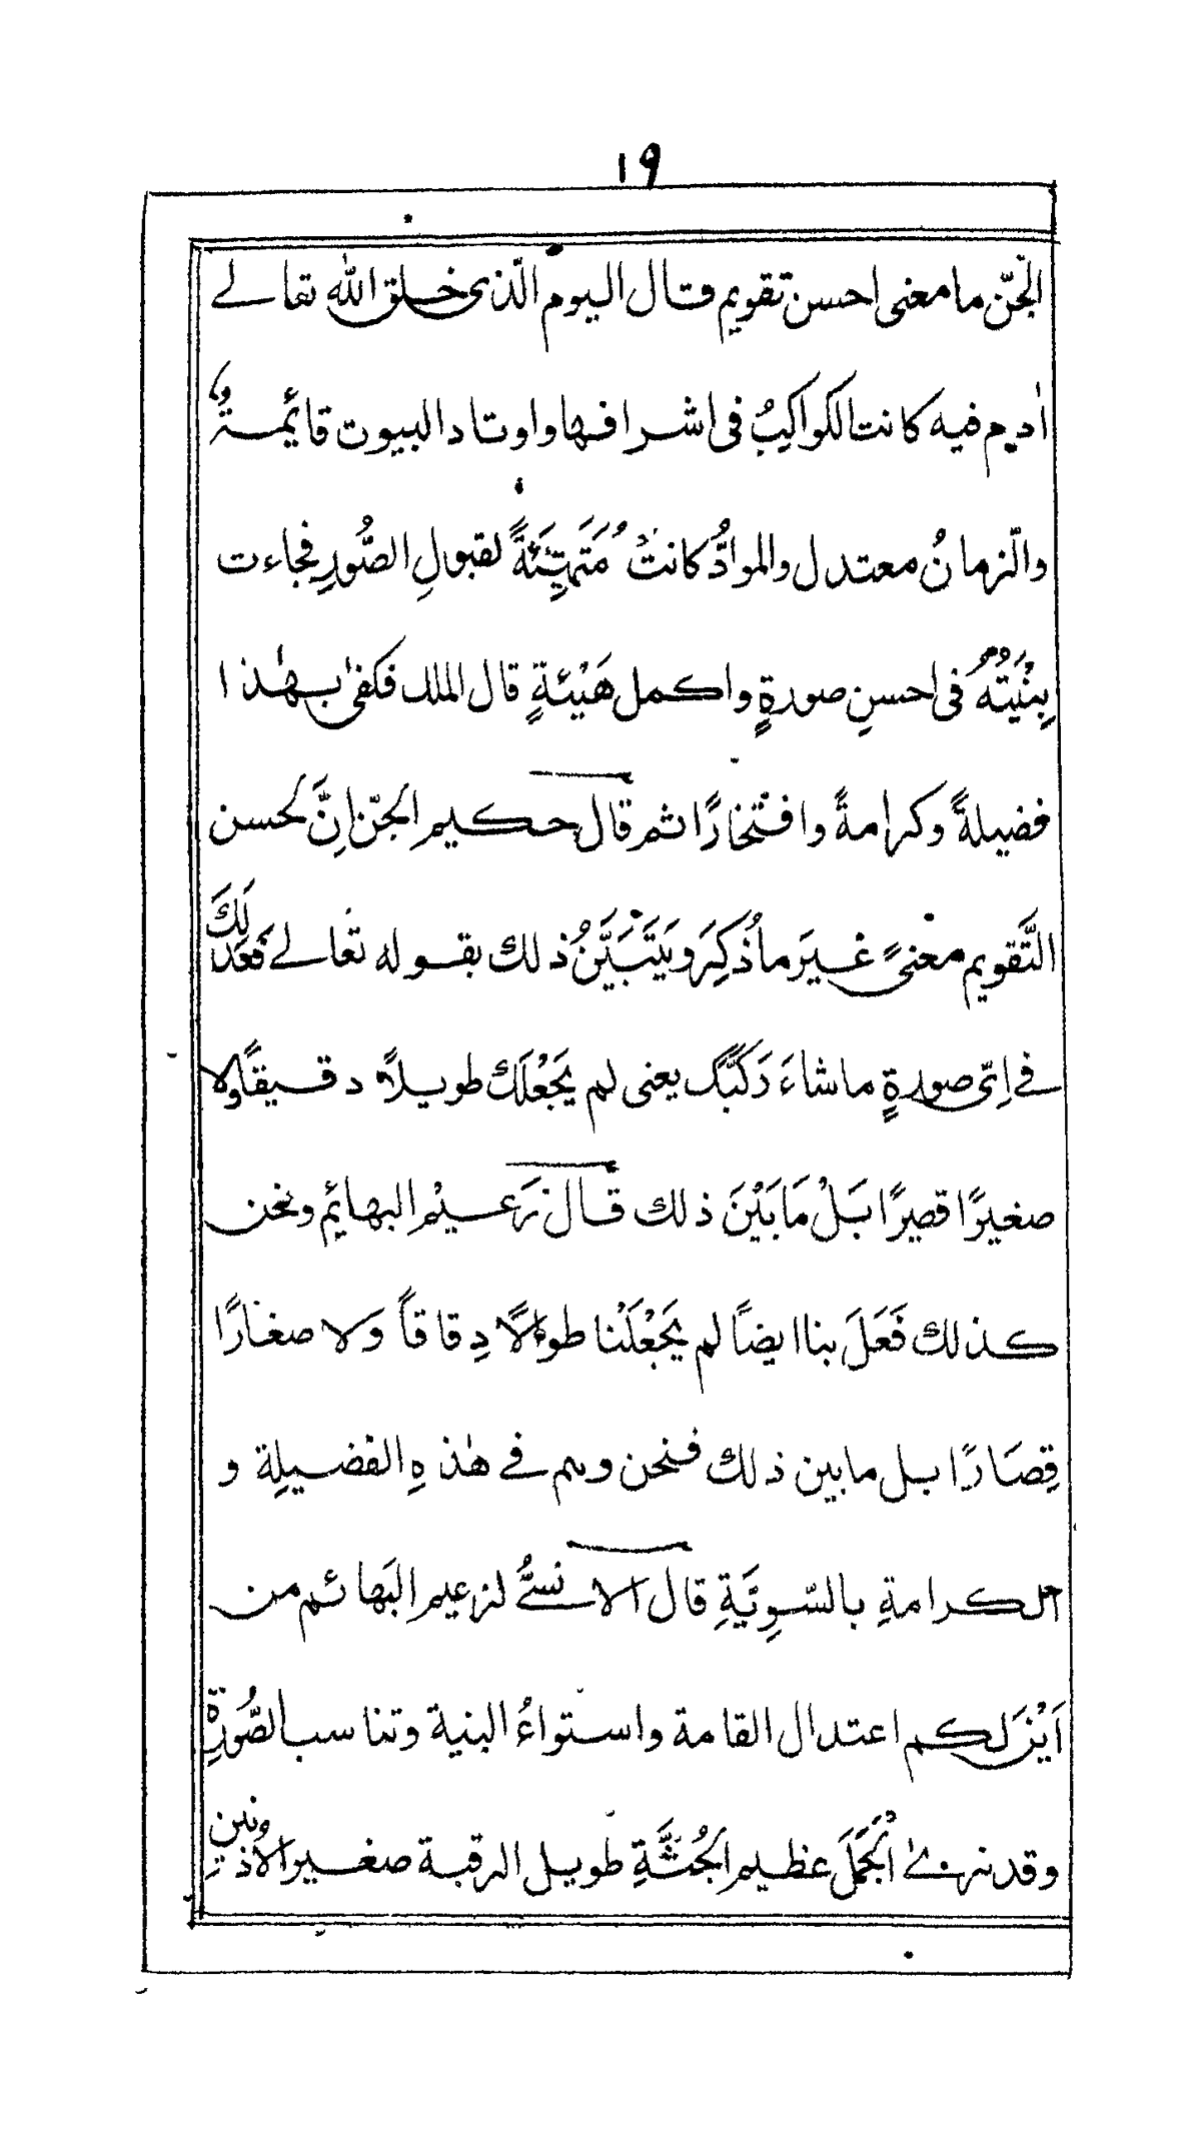 ١٩
الجنّ ما معنى احسن تقويم قال اليوم الّذى خلق الله تعالے
اٰدم فيه كانت الكواكبُ فى اشرافها واوتاد البيوت قائمةٌ
والزمانُ معتدل والموادُّ كانتْ مُتَهيِّئَةً لقبولِ الصُّورِ فجاءت
بِنْيَتُهُ فى احسنِ صورةٍ واكمل هَيْئةٍ قال الملك فكفىٰ بهٰذا
فضيلةً وكرامةً وافتخارًا ثم قال حكيم الجنّ اِنَّ لحسن
التَّقويم معنىً غيرَ ما ذُكِرَ ويَتَبَيَّنُ ذلك بقوله تعالے فَعَدَلَكَ
فے اىّ صورةٍ ما شاءَ رَكَّبَك يعنى لم يَجْعَلَكَ طويلاً دقيقًا ولا
صغيرًا قصيرًا بَلْ مَا بَيْنَ ذلك قال زَعيْمُ البهائم ونحن
كذلك فَعَلَ بنا ايضاً لم يَجْعَلْنا طوالًا دِقاقاً وَلا صغارًا
قِصَارًا بل ما بين ذلك فنحن وهم فے هٰذهِ الفضيلِة و
الكرامةِ بالسَّوِيَّةِ قال الانسىُّ لزعيم البَهائم من
اَيْنَ لكم اعتدال القامة واستواءُ البنية وتناسب الصُّورةِ
وقد نرىٰ الْجَمَلَ عظيم الجُثَّةِ طويل الرقبة صغير الاُذنين